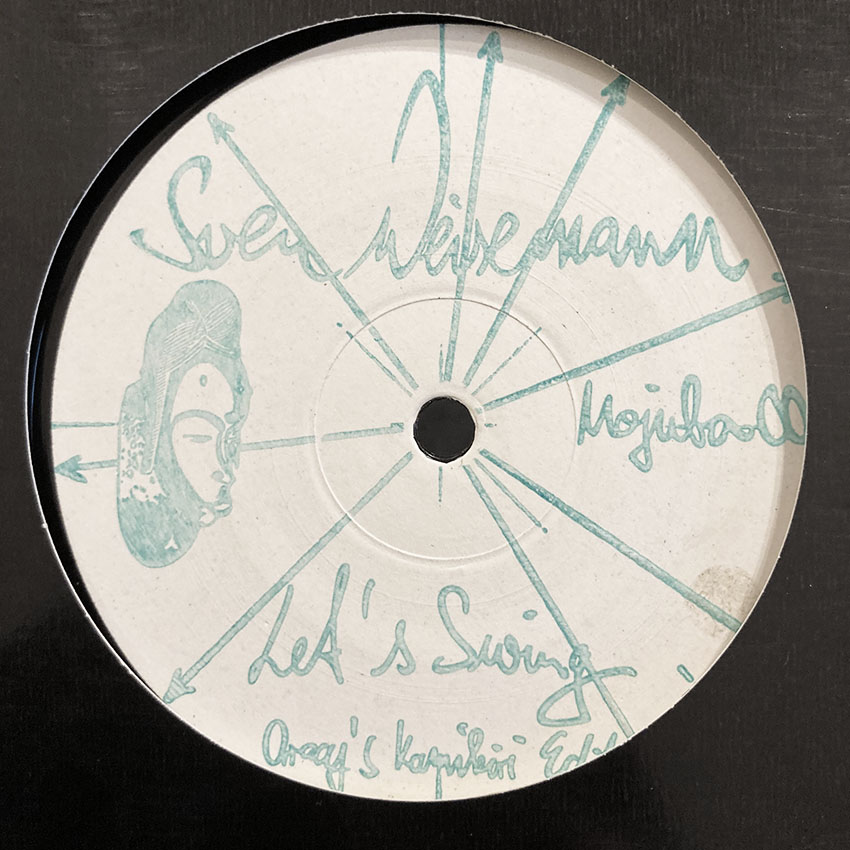 Sven Weisemann
Mojuba 00
Let's Swing
Oracy's Kamikiri Edit